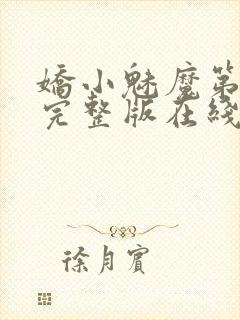 嬌小魅魔第
完整版在綫
徐月賓